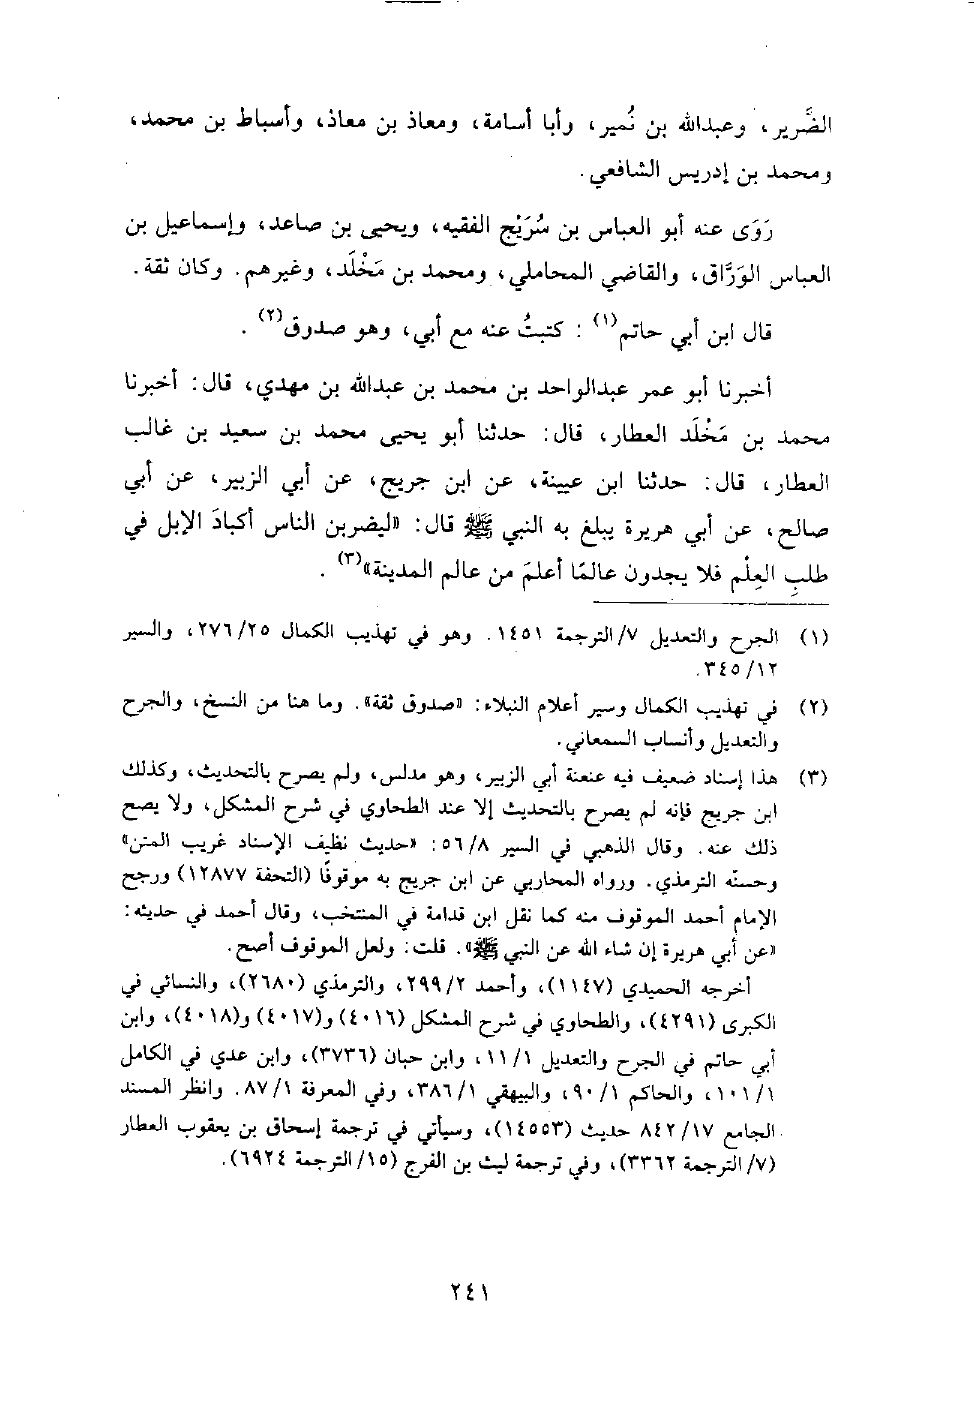 الضَّرير، وعبدالله بن نُمير، وأبا أسامة، ومعاذ بن معاذ، وأسباط بن محمد،
ومحمد بن إدريس الشافعي.
رَوَى عنه أبو العباس بن سُرَيْج الفقيه، ويحيى بن صاعد، وإسماعيل بن
العباس الوَرَّاق، والقاضي المحاملي، ومحمد بن مَخْلَد، وغيرهم. وكان ثقة.
قال ابن أبي حاتم(١) : كتبتُ عنه مع أبي، وهو صدوق(٢) .
أخبرنا أبو عمر عبدالواحد بن محمد بن عبدالله بن مهدي، قال: أخبرنا
محمد بن مَخْلَد العطار، قال: حدثنا أبو يحيى محمد بن سعيد بن غالب
العطار، قال: حدثنا ابن عيينة، عن ابن جريج، عن أبي الزبير، عن أبي
صالح، عن أبي هريرة يبلغ به النبي ﷺ قال: «ليضربن الناس أكبادَ الإبل في
طلبِ العِلْم فلا يجدون عالمًا أعلمَ من عالم المدينة»(٣) .
(١) الجرح والتعديل ٧/ الترجمة ١٤٥١. وهو في تهذيب الكمال ٢٥/ ٢٧٦، والسير
١٢/ ٣٤٥.
(٢) في تهذيب الكمال وسير أعلام النبلاء: «صدوق ثقة». وما هنا من النسخ، والجرح
والتعديل وأنساب السمعاني.
(٣) هذا إسناد ضعيف فيه عنعنة أبي الزبير، وهو مدلس، ولم يصرح بالتحديث، وكذلك
ابن جريج فإنه لم يصرح بالتحديث إلا عند الطحاوي في شرح المشكل، ولا يصح
ذلك عنه. وقال الذهبي في السير ٨/ ٥٦: «حديث نظيف الإسناد غريب المتن»
وحسنّه الترمذي. ورواه المحاربي عن ابن جريج به موقوفًا (التحفة ١٢٨٧٧) ورجح
الإمام أحمد الموقوف منه كما نقل ابن قدامة في المنتخب، وقال أحمد في حديثه:
«عن أبي هريرة إن شاء الله عن النبي ﷺ». قلت: ولعل الموقوف أصح.
أخرجه الحميدي (١١٤٧)، وأحمد ٢/ ٢٩٩، والترمذي (٢٦٨٠)، والنسائي في
الكبرى (٤٢٩١)، والطحاوي في شرح المشكل (٤٠١٦) و(٤٠١٧) و(٤٠١٨)، وابن
أبي حاتم في الجرح والتعديل ١/ ١١، وابن حبان (٣٧٣٦)، وابن عدي في الكامل
١/ ١٠١، والحاكم ١/ ٩٠، والبيهقي ١/ ٣٨٦، وفي المعرفة ١/ ٨٧. وانظر المسند
الجامع ١٧/ ٨٤٢ حديث (١٤٥٥٣)، وسيأتي في ترجمة إسحاق بن يعقوب العطار
(٧/ الترجمة ٣٣٦٢)، وفي ترجمة ليث بن الفرج (١٥/ الترجمة ٦٩٢٤).
٢٤١